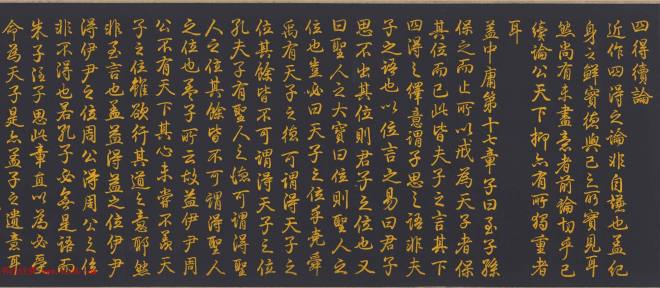 四得續論
近作四得之論非自謙也蓋紀
身之鮮實德與己之所實見耳
然尚有未盡意者前論切乎己
續論公天下抑亦有所獨重者
耳
蓋中庸第十七章子曰至子孫
保之而止所以戒為天子者保
其位而已此皆夫子之言其下
四得之繹意謂子思之語非夫
子之語也以位言之易曰君子
思不出其位則君子之位也又
曰聖人之大寶曰位則聖人之
位也豈必曰天子之位乎堯舜
禹有天子之德可謂得天子之
位其餘皆不可謂得天子之位
孔夫子有聖人之德可謂得聖
人之位其餘皆不可謂得聖人
之位也孟子所云故益伊尹周
公不有天下其心未嘗不羨天
子之位雖欲行其道之意耶然
非至言也益得益之位伊尹
得伊尹之位周公得周公之位
非不得也若孔子必無是語而
朱子注子思此章直以為必受
命為天子是亦孟子之遺意耳